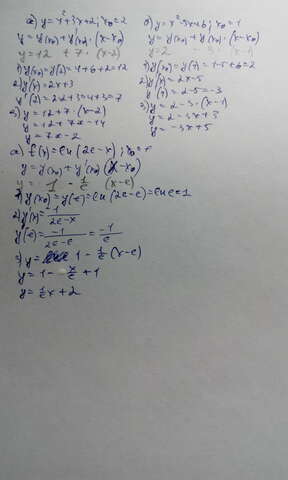 а) y = x² + 3x + 2, x₀ = 2
y = y(x₀) + y'(x₀) · (x - x₀)
y = 12 + 7 · (x - 2)
1) y(x₀) = y(2) = 4 + 6 + 2 = 12
2) y'(x) = 2x + 3
y'(2) = 2·2 + 3 = 4 + 3 = 7
3) y = 12 + 7 · (x - 2)
y = 12 + 7x - 14
y = 7x - 2
y = x² - 5x + 6; x₀ = 1
y = y(x₀) + y'(x₀) · (x - x₀)
y = 2 - 3 · (x - 1)
1) y(x₀) = y(1) = 1 - 5 + 6 = 2
2) y'(x) = 2x - 5
y'(1) = 2 - 5 = -3
3) y = 2 - 3 · (x - 1)
y = 2 - 3x + 3
y = -3x + 5
а) f(x) = ln(2e - x); x₀ = e
y = y(x₀) + y'(x₀) · (x - x₀)
y = 1 - 1/e (x - e)
1) y(x₀) = y(e) = ln(2e - e) = ln e = 1
2) y'(x) = -1/(2e - x)
y'(e) = -1/(2e - e) = -1/e
3) y = 1 - 1/e (x - e)
y = 1 - x/e + 1
y = 1/e x + 2